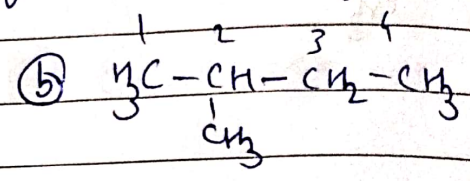 1 2 3 4
(b) H₃C-CH-CH₂-CH₃
CH₃